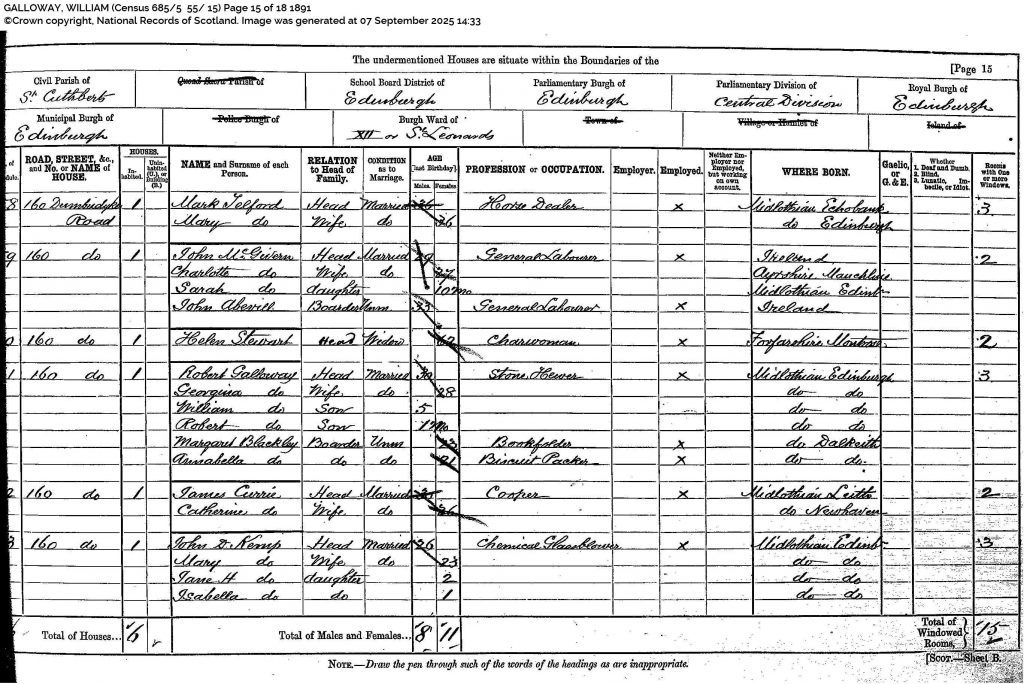 GALLOWAY, WILLIAM (Census 685/5 55/ 15) Page 15 of 18 1891
©Crown copyright, National Records of Scotland. Image was generated at 07 September 2025 14:33
The undermentioned Houses are situate within the Boundaries of the
[Page 15
Civil Parish of Quoad Sacra Parish of School Board District of Parliamentary Burgh of Parliamentary Division of Royal Burgh of
St Cuthberts Edinburgh Edinburgh Central Division Edinburgh
Municipal Burgh of Police Burgh of Burgh Ward of Town of Village or Hamlet of Island of
Edinburgh XII or St Leonards
ROAD, STREET, &c., and No. or NAME of HOUSE. HOUSES. Inhabited. Uninhabited (U.), or Building (B.) NAME and Surname of each Person. RELATION to Head of Family. CONDITION as to Marriage. AGE [last Birthday]. Males. Females. PROFESSION or OCCUPATION. Employer. Employed. Neither Employer nor Employed, but working on own account. WHERE BORN. Gaelic, or G. & E. Whether 1. Deaf and Dumb. 2. Blind. 3. Lunatic, Imbecile, or Idiot. Rooms with One or more Windows.
8 160 Dumbiedykes 1 Mark Telford Head Married Horse Dealer x Midlothian Echobank 3
Road Mary do Wife do 26 do Edinburgh
9 160 do 1 John McGivern Head Married 29 General Labourer x Ireland 2
Charlotte do Wife do 27 Ayrshire Mauchline
Sarah do daughter 10mo Midlothian Edinb
John Boarder Unm 33 General Labourer x Ireland
0 160 do 1 Helen Stewart Head Widow Charwoman x Forfarshire Montrose 2
1 160 do 1 Robert Galloway Head Married 30 Stone Hewer x Midlothian Edinburgh 3
Georgina do Wife do 28 do do
William do Son 5 do do
Robert do Son 1 mo do do
Margaret Blackley Boarder Unm Bookfolder x do Dalkeith
Annabella do do do 21 Biscuit Packer x do do
2 160 do 1 James Currie Head Married Cooper x Midlothian Leith 2
Catherine do Wife do 26 do Newhaven
3 160 do 1 John D. Kemp Head Married 26 Chemical Glassblower x Midlothian Edinb 3
Mary do Wife do 23 do do
Jane H do daughter 2 do do
Isabella do do 1 do do
Total of Houses... 6 Total of Males and Females... 8 11 Total of Windowed Rooms, 15
NOTE.—Draw the pen through such of the words of the headings as are inappropriate.
[SCOT.—Sheet B.